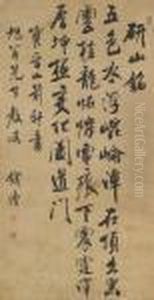 研山銘
五色水浮崐崘潭在頂出黑
雲挂龍怪爍電痕下震霆澤
厚坤極變化闔道門
寶晉山前軒書